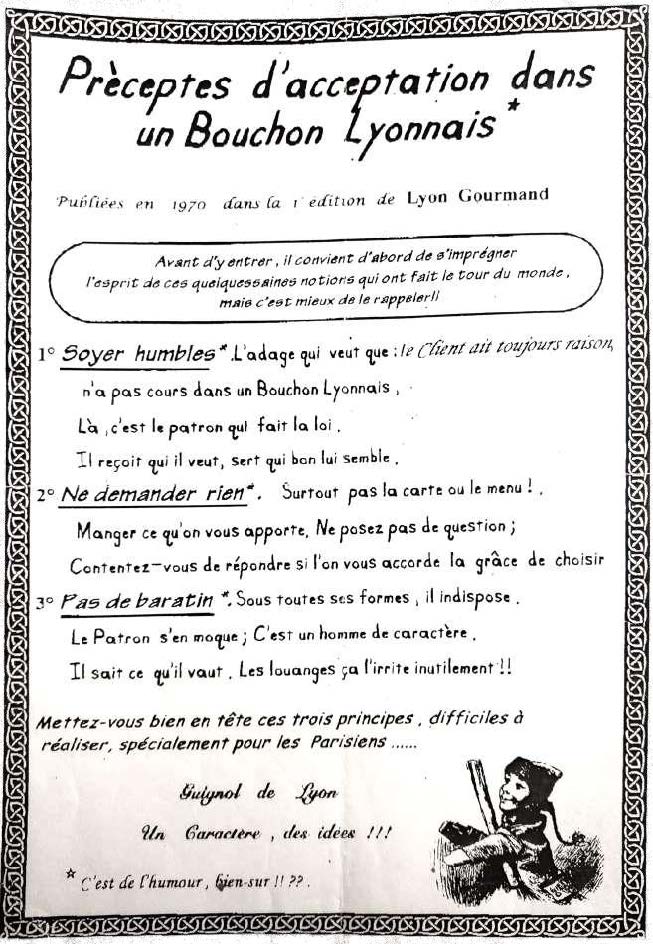 Prèceptes d'acceptation dans
un Bouchon Lyonnais *
Publiées en 1970 dans la 1° édition de Lyon Gourmand
Avant d'y entrer, il convient d'abord de s'imprégner
l'esprit de ces quelquessaines notions qui ont fait le tour du monde,
mais c'est mieux de le rappeler!!
1° Soyer humbles*. L'adage qui veut que : le Client ait toujours raison,
n'a pas cours dans un Bouchon Lyonnais,
Là, c'est le patron qui fait la loi.
Il reçoit qui il veut, sert qui bon lui semble.
2° Ne demander rien*. Surtout pas la carte ou le menu !.
Manger ce qu'on vous apporte. Ne posez pas de question ;
Contentez-vous de répondre si l'on vous accorde la grâce de choisir
3° Pas de baratin *. Sous toutes ses formes, il indispose.
Le Patron s'en moque ; C'est un homme de caractère.
Il sait ce qu'il vaut. Les louanges ça l'irrite inutilement !!
Mettez-vous bien en tête ces trois principes, difficiles à
réaliser, spécialement pour les Parisiens ......
Guignol de Lyon
Un Caractère, des idées !!!
* C'est de l'humour, bien-sur !! ??.